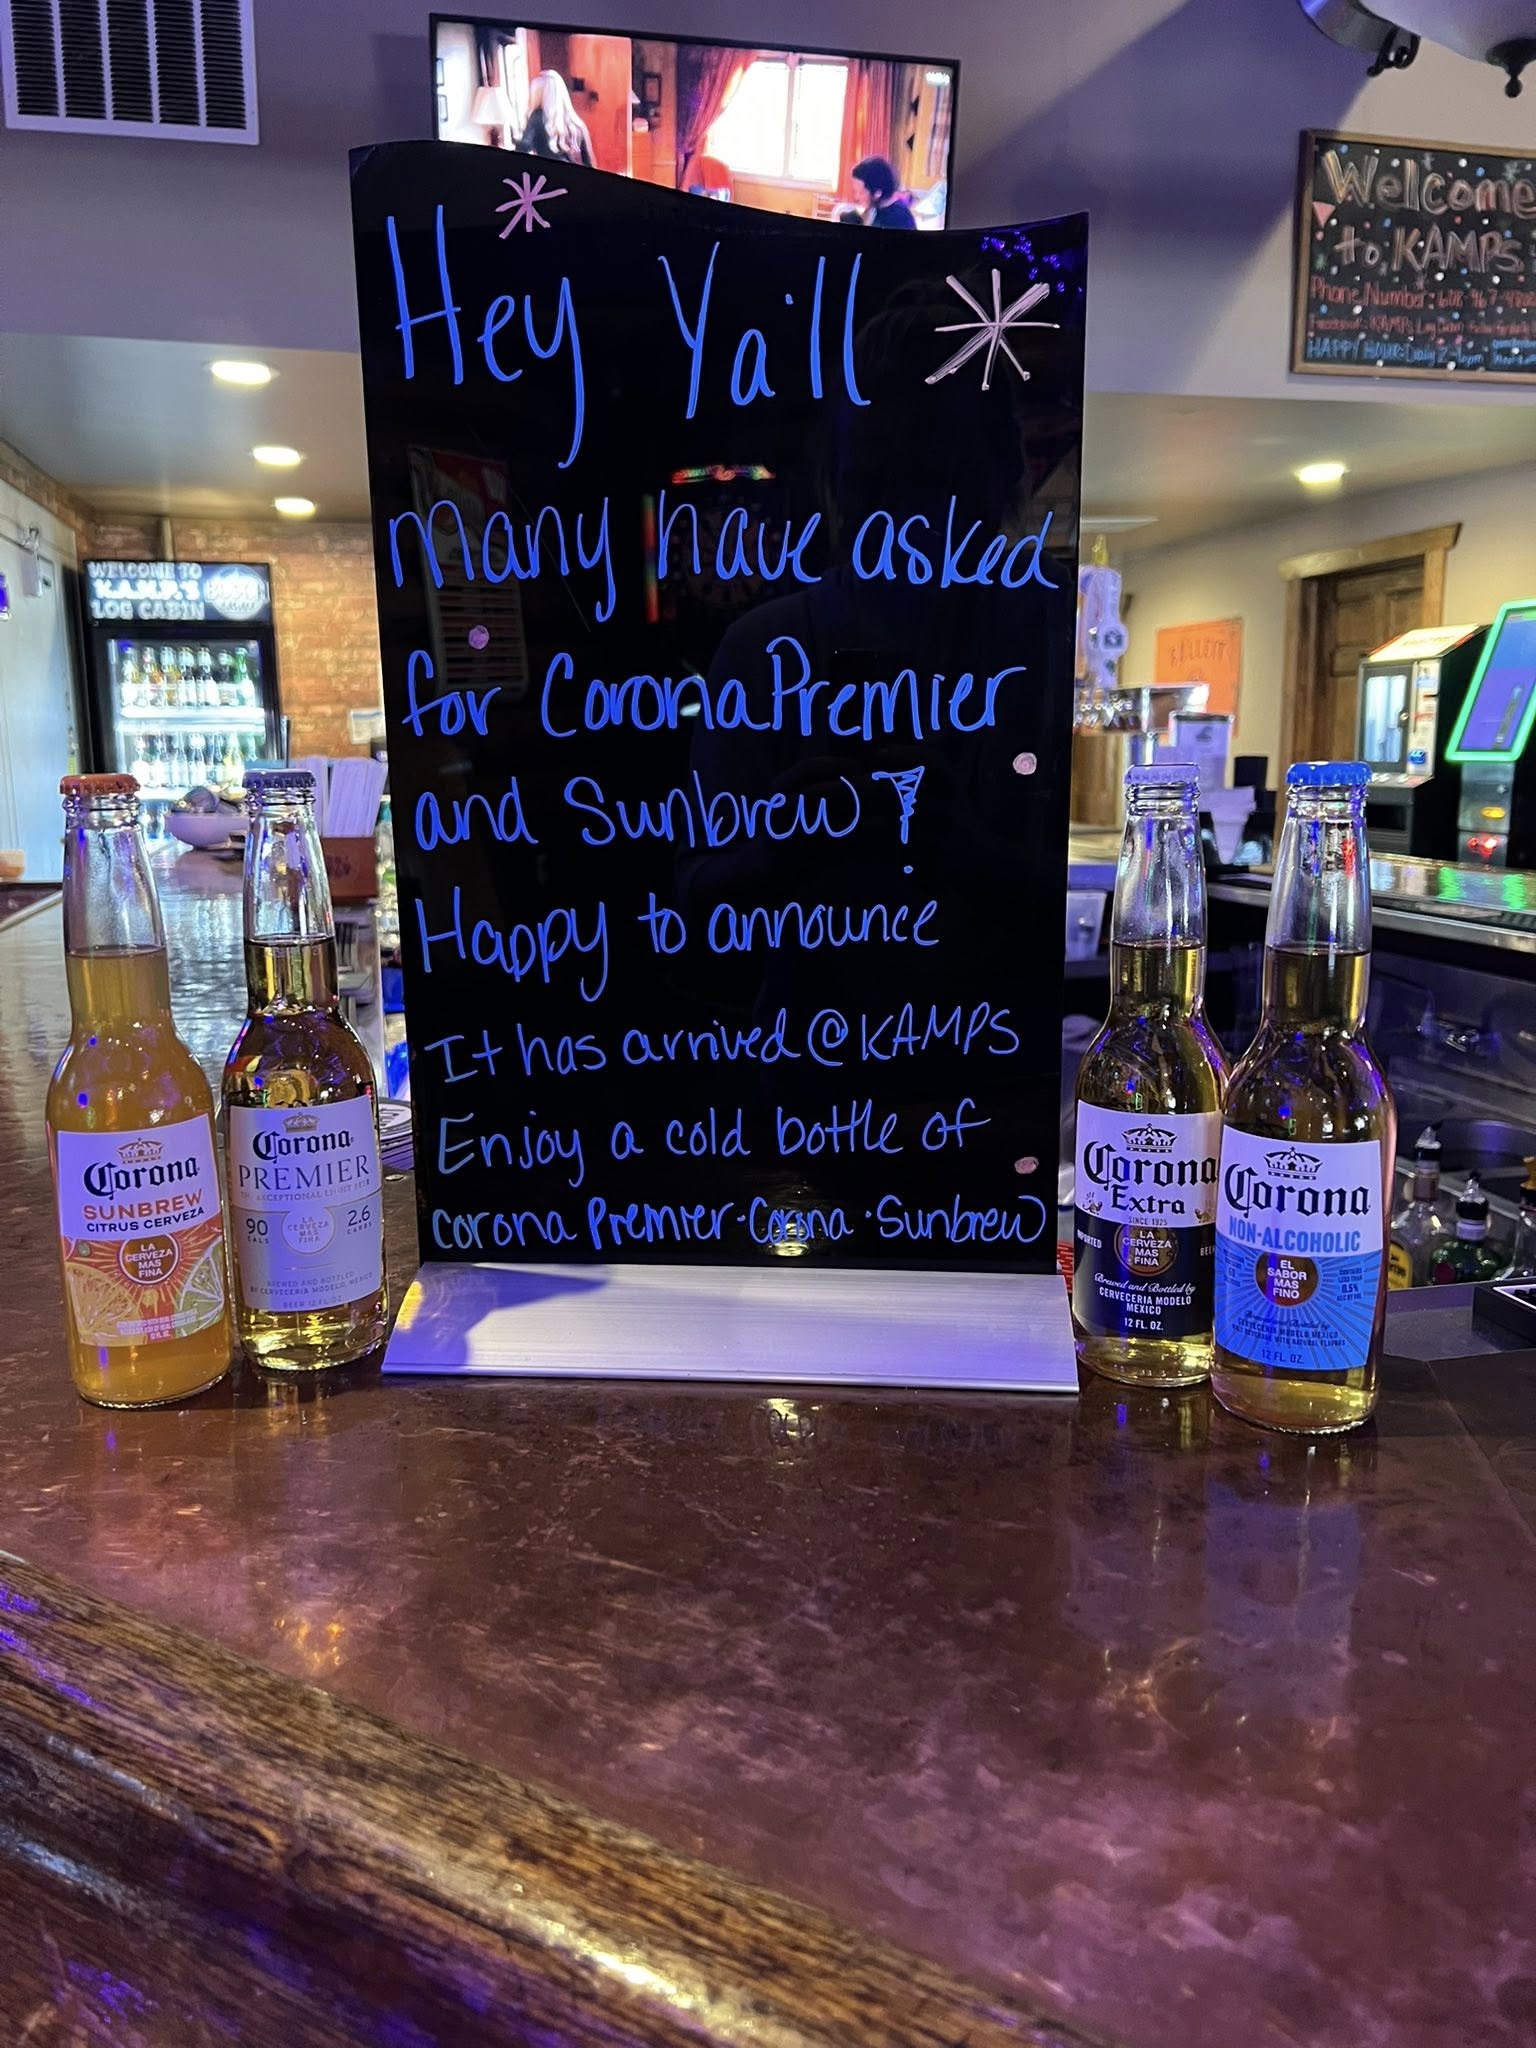 Hey Ya'll
Many have asked
for Corona Premier
and Sunbrew!
Happy to announce
It has arrived @ KAMPS
Enjoy a cold bottle of
corona Premier · Corona · Sunbrew
Welcome
to KAMPs
Phone Number: 608-967-
HAPPY HOUR: Daily 2-6pm
WELCOME TO
K.A.M.P.'S
LOG CABIN
BUSCH
Corona
SUNBREW
CITRUS CERVEZA
LA
CERVEZA
MAS
FINA
Corona
PREMIER
THE EXCEPTIONAL LIGHT BEER
90
CALS
LA
CERVEZA
MAS
FINA
2.6
CARBS
BREWED AND BOTTLED
BY CERVECERIA MODELO, MEXICO
BEER 12 FL. OZ.
Corona
Extra
SINCE 1925
IMPORTED
LA
CERVEZA
MAS
FINA
BEER
Brewed and Bottled by
CERVECERIA MODELO
MEXICO
12 FL. OZ.
Corona
NON-ALCOHOLIC
EL
SABOR
MAS
FINO
CONTAINS
LESS THAN
0.5%
ALC BY VOL
Brewed and Bottled by
CERVECERIA MODELO, MEXICO
MALT BEVERAGE WITH NATURAL FLAVORS
12 FL. OZ.